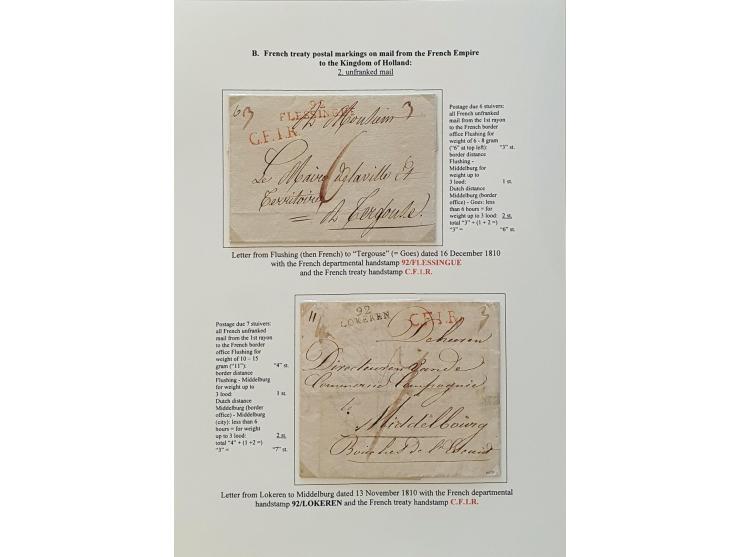 B. French treaty postal markings on mail from the French Empire
to the Kingdom of Holland:
2. unfranked mail
6 3
92
FLESSINGUE
3
C.F.1.R.
A Monsieur
6
Le Maire de la ville Et
Territoire
= de Tergouse.
Postage due 6 stuivers:
all French unfranked
mail from the 1st rayon
to the French border
office Flushing for
weight of 6 - 8 gram
("6" at top left): "3" st.
border distance
Flushing -
Middelburg for
weight up to
3 lood: 1 st.
Dutch distance
Middelburg (border
office) - Goes: less
than 6 hours = for
weight up to 3 lood: 2 st.
total "3" + (1 + 2 =)
"3" = "6" st.
Letter from Flushing (then French) to "Tergouse" (= Goes) dated 16 December 1810
with the French departmental handstamp 92/FLESSINGUE
and the French treaty handstamp C.F.1.R.
Postage due 7 stuivers:
all French unfranked
mail from the 1st rayon
to the French border
office Flushing for
weight of 10 – 15
gram ("11"): "4" st.
border distance
Flushing - Middelburg
for weight up to
3 lood: 1 st.
Dutch distance
Middelburg (border
office) - Middelburg
(city): less than 6
hours = for weight
up to 3 lood: 2 st.
total "4" + (1 +2 =)
"3" = "7" st.
11
92
LOKEREN
C.F.1.R.
3
De heeren
Directeuren van de
Commercie Compagnie
te
Middelbourg
Bouches de l'Escaut
Letter from Lokeren to Middelburg dated 13 November 1810 with the French departmental
handstamp 92/LOKEREN and the French treaty handstamp C.F.1.R.